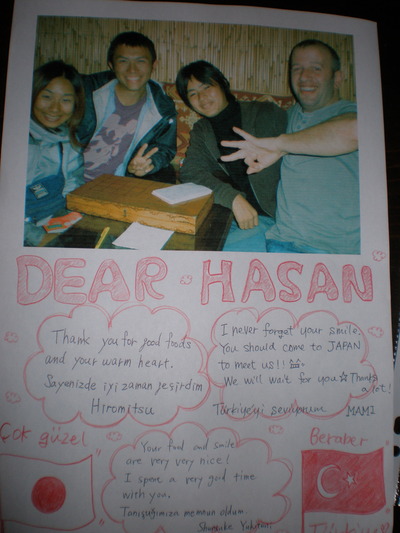 DEAR HASAN
Thank you for good foods
and your warm heart.
Sayenizde iyi zaman geşirdim
Hiromitsu
I never forgot your smile.
You should come to JAPAN
to meet us!!
We will wait for you☆ Thanks
a lot!
Türkiye'yi seviyorum MAMI
Çok güzel
Your food and smile
are very very nice!
I spent a very good time
with you.
Tanıştığımıza memnun oldum.
Shunsuke
Beraber